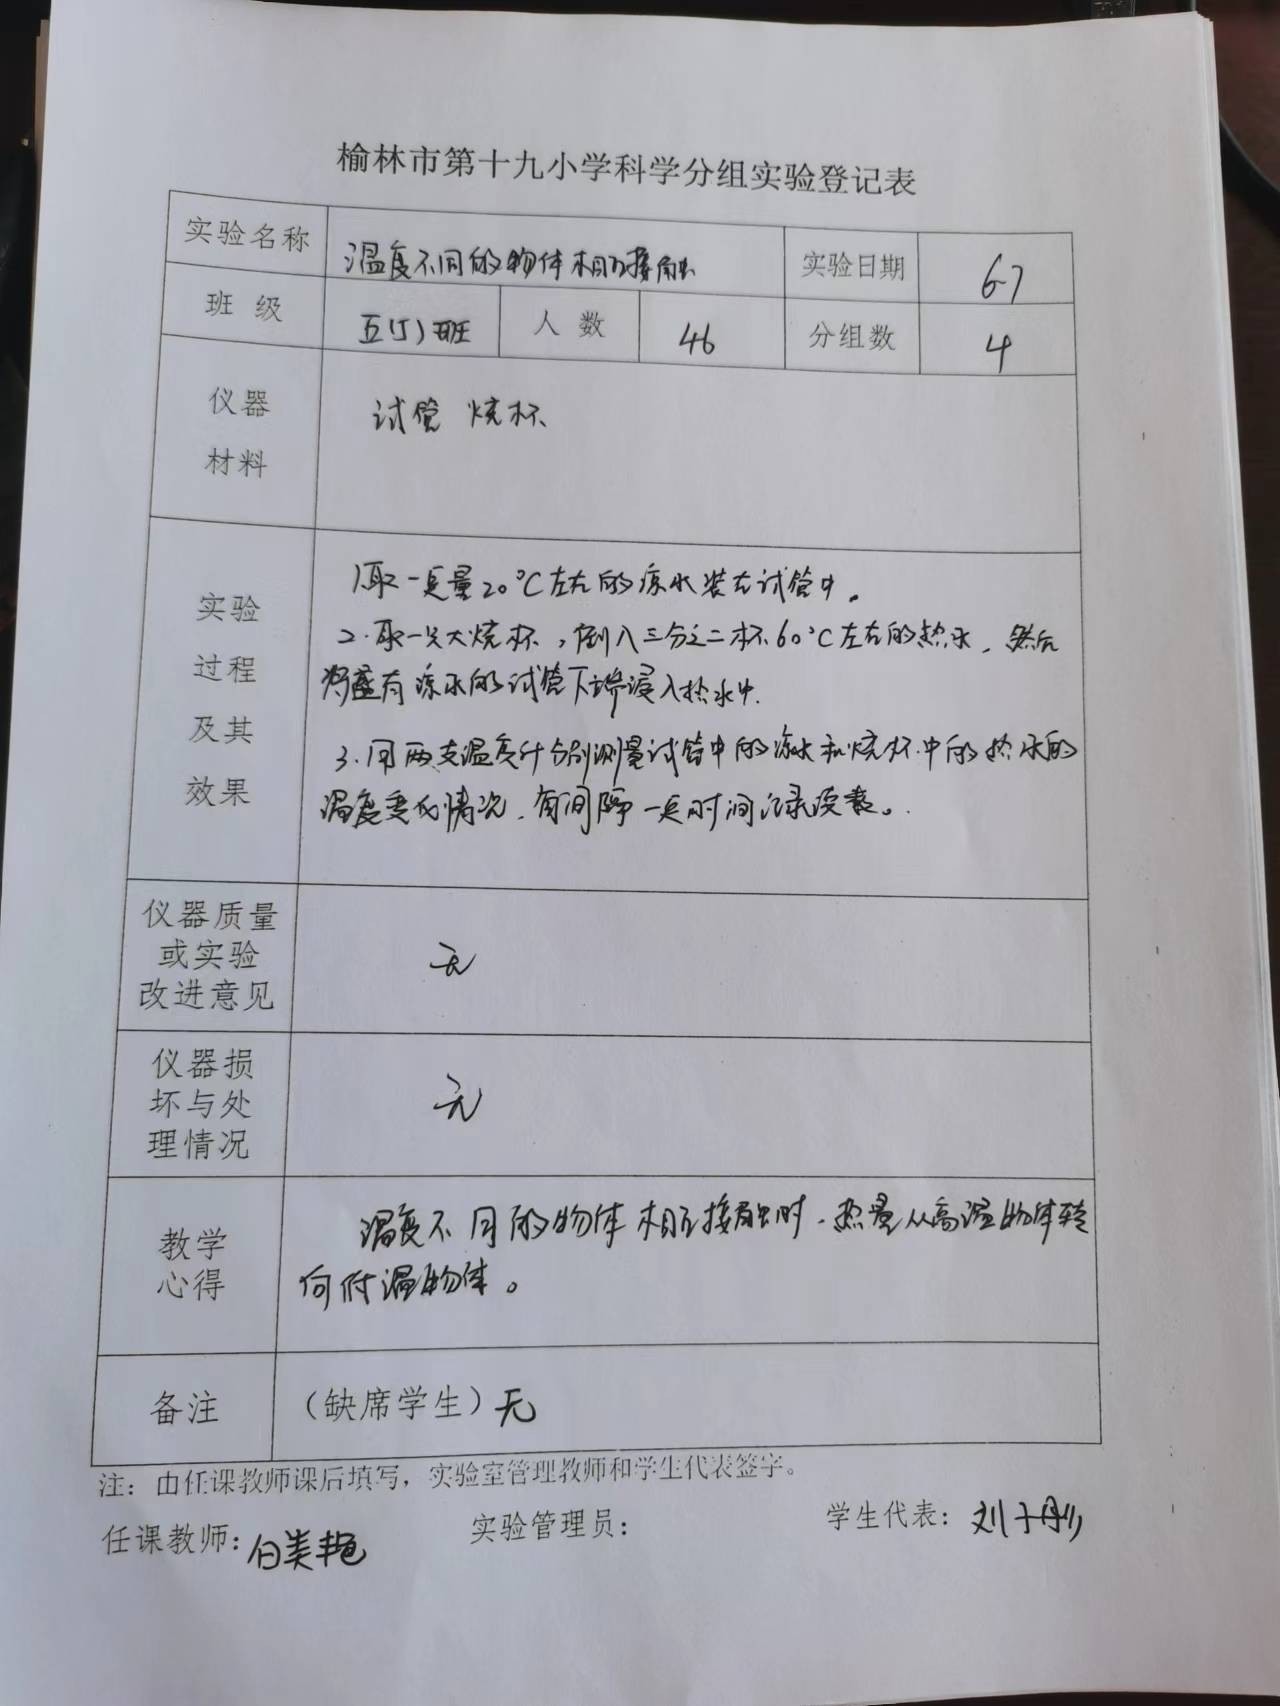 榆林市第十九小学科学分组实验登记表
实验名称 温度不同的物体相互接触 实验日期 6-7
班 级 五(5)班 人 数 46 分组数 4
仪器
材料
试管 烧杯
实验
过程
及其
效果
1.取一定量20℃左右的凉水装在试管中。
2.取一只大烧杯,倒入三分之二杯60℃左右的热水,然后
将盛有凉水的试管下端浸入热水中.
3.用两支温度计分别测量试管中的凉水和烧杯中的热水的
温度变化情况,每间隔一定时间记录读数。
仪器质量
或实验
改进意见
无
仪器损
坏与处
理情况
无
教学
心得
温度不同的物体相互接触时,热量从高温物体转
向低温物体。
备注 (缺席学生)无
注:由任课教师课后填写,实验室管理教师和学生代表签字。
任课教师: 实验管理员: 学生代表:刘子彤